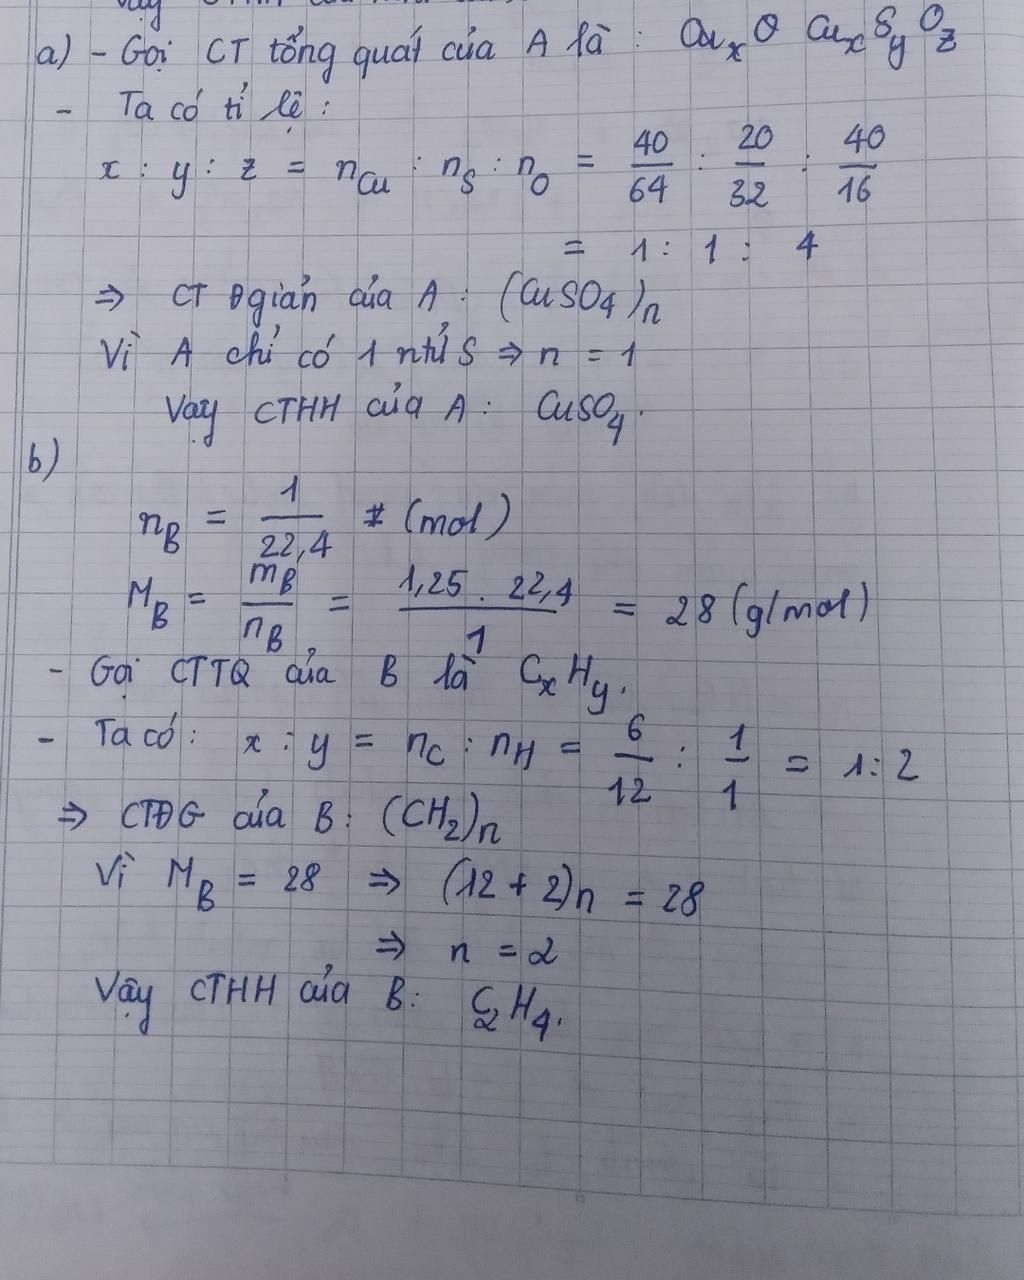 a) - Gọi CT tổng quát của A là : CuxO CuxSyOz
- Ta có tỉ lệ :
x : y : z = nCu : nS : nO = 40/64 : 20/32 : 40/16
= 1 : 1 : 4
⇒ CT Đgiản của A : (CuSO4)n
Vì A chỉ có 1 ntử S ⇒ n = 1
Vậy CTHH của A : CuSO4.
b)
nB = 1/22,4 (mol)
MB = mB/nB = 1,25 . 22,4/1 = 28 (g/mol)
- Gọi CTTQ của B là CxHy.
- Ta có : x : y = nC : nH = 6/12 : 1/1 = 1 : 2
⇒ CTĐG của B : (CH2)n
Vì MB = 28 ⇒ (12 + 2)n = 28
⇒ n = 2
Vậy CTHH của B : C2H4.